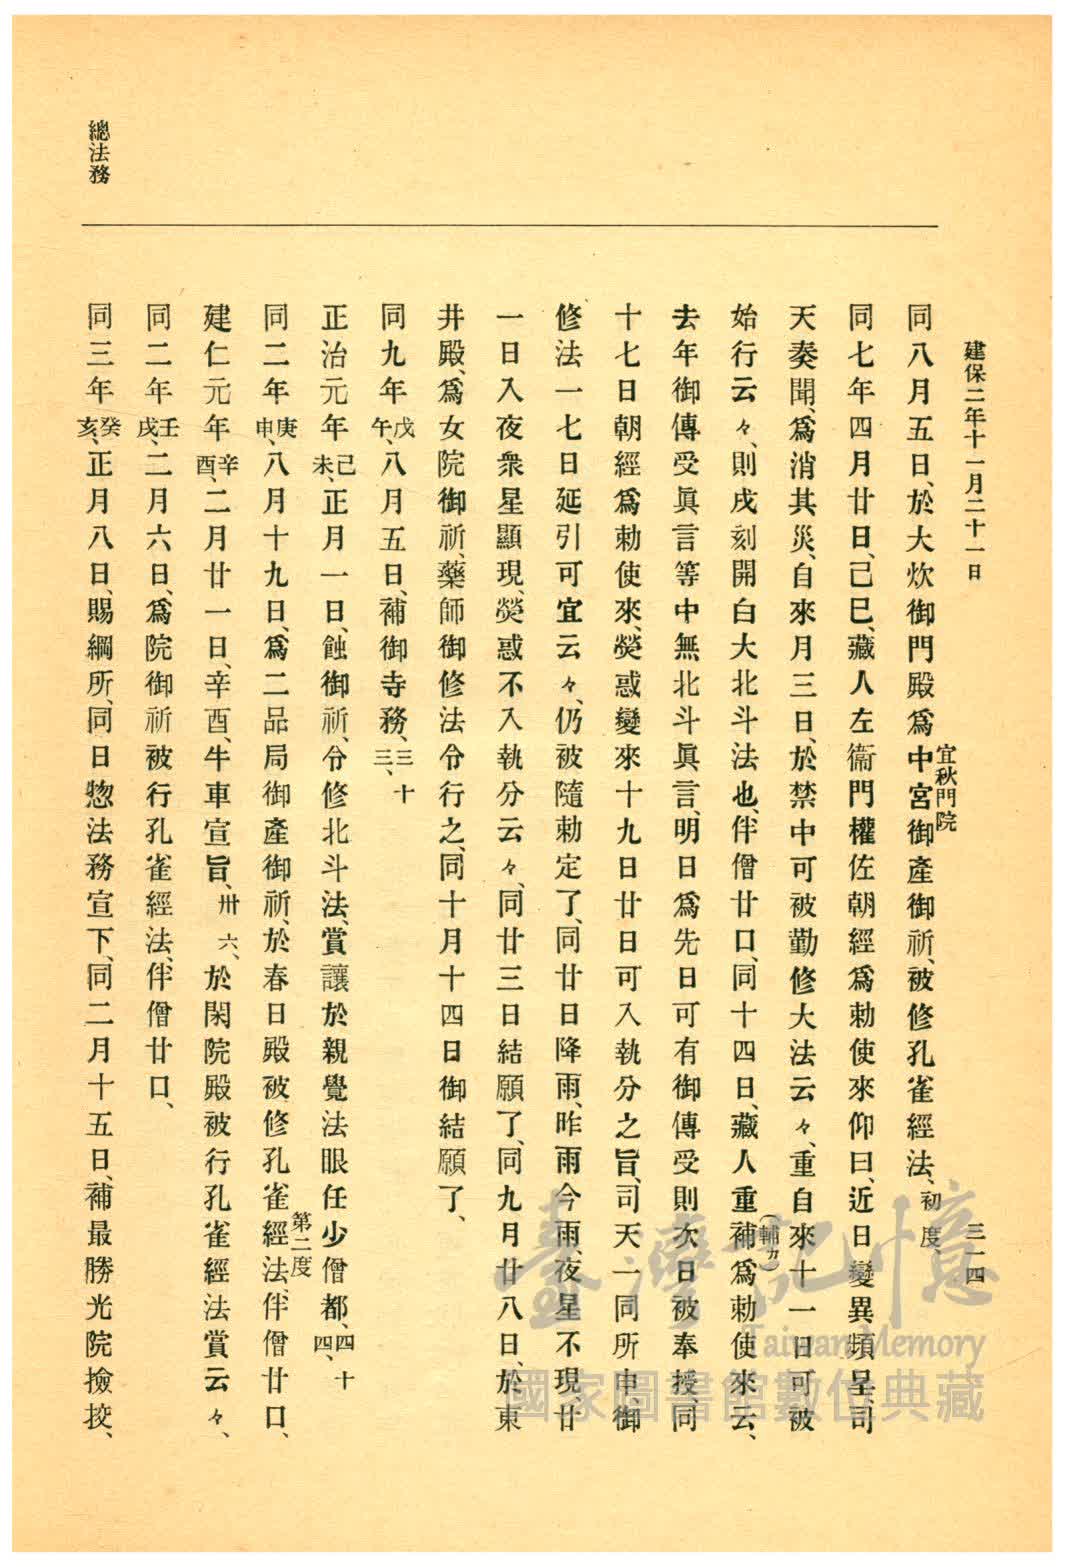 建保二年十一月二十一日
三一四
同八月五日、於大炊御門殿爲中宮御產御祈、被修孔雀經法、初度、
宜秋門院
同七年四月廿日、己巳、藏人左衞門權佐朝經爲勅使來仰曰、近日變異頻呈、司
天奏聞、爲消其災、自來月三日、於禁中可被勤修大法云々、重自來十一日可被
始行云々、則戌刻開白大北斗法也、伴僧廿口、同十四日、藏人重補爲勅使來云、
(輔カ)
去年御傳受眞言等中無北斗眞言、明日爲先日可有御傳受則次日被奉授、同
十七日朝經爲勅使來、熒惑變來十九日廿日可入執分之旨、司天一同所申、御
修法一七日延引可宜云々、仍被隨勅定了、同廿日降雨、昨雨今雨、夜星不現、廿
一日入夜衆星顯現、熒惑不入執分云々、同廿三日結願了、同九月廿八日、於東
井殿、爲女院御祈、藥師御修法令行之、同十月十四日御結願了、
同九年戊午、八月五日、補御寺務、三十三、
正治元年己未、正月一日、蝕御祈、令修北斗法、賞讓於親覺法眼任少僧都、四十四、
同二年庚申、八月十九日、爲二品局御產御祈、於春日殿被修孔雀經法、伴僧廿口、
第二度
建仁元年辛酉、二月廿一日、辛酉、牛車宣旨、卅六、於閑院殿被行孔雀經法賞云々、
同二年壬戌、二月六日、爲院御祈被行孔雀經法、伴僧廿口、
同三年癸亥、正月八日、賜綱所、同日惣法務宣下、同二月十五日、補最勝光院撿挍、
總法務
臺灣記憶
Taiwan Memory
國家圖書館數位典藏